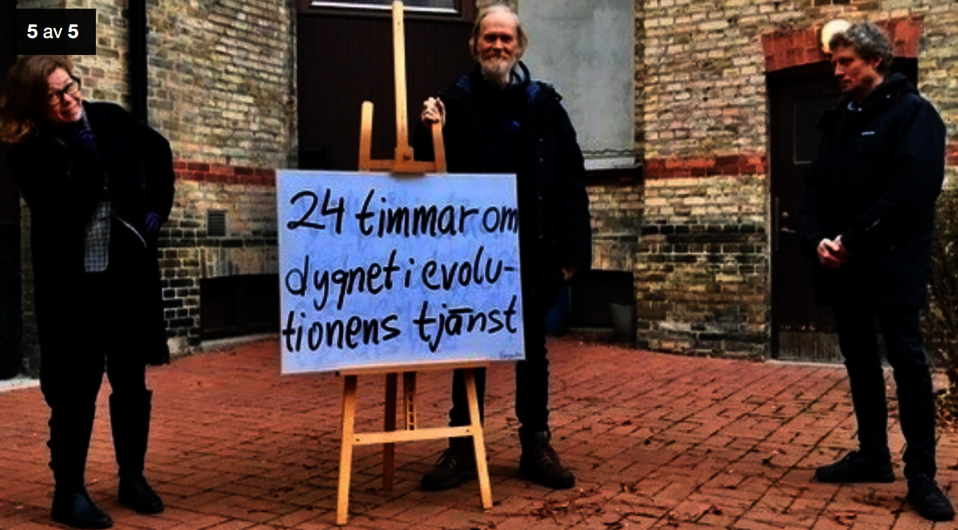 5 av 5
24 timmar om
dygnet i evolu-
tionens tjänst